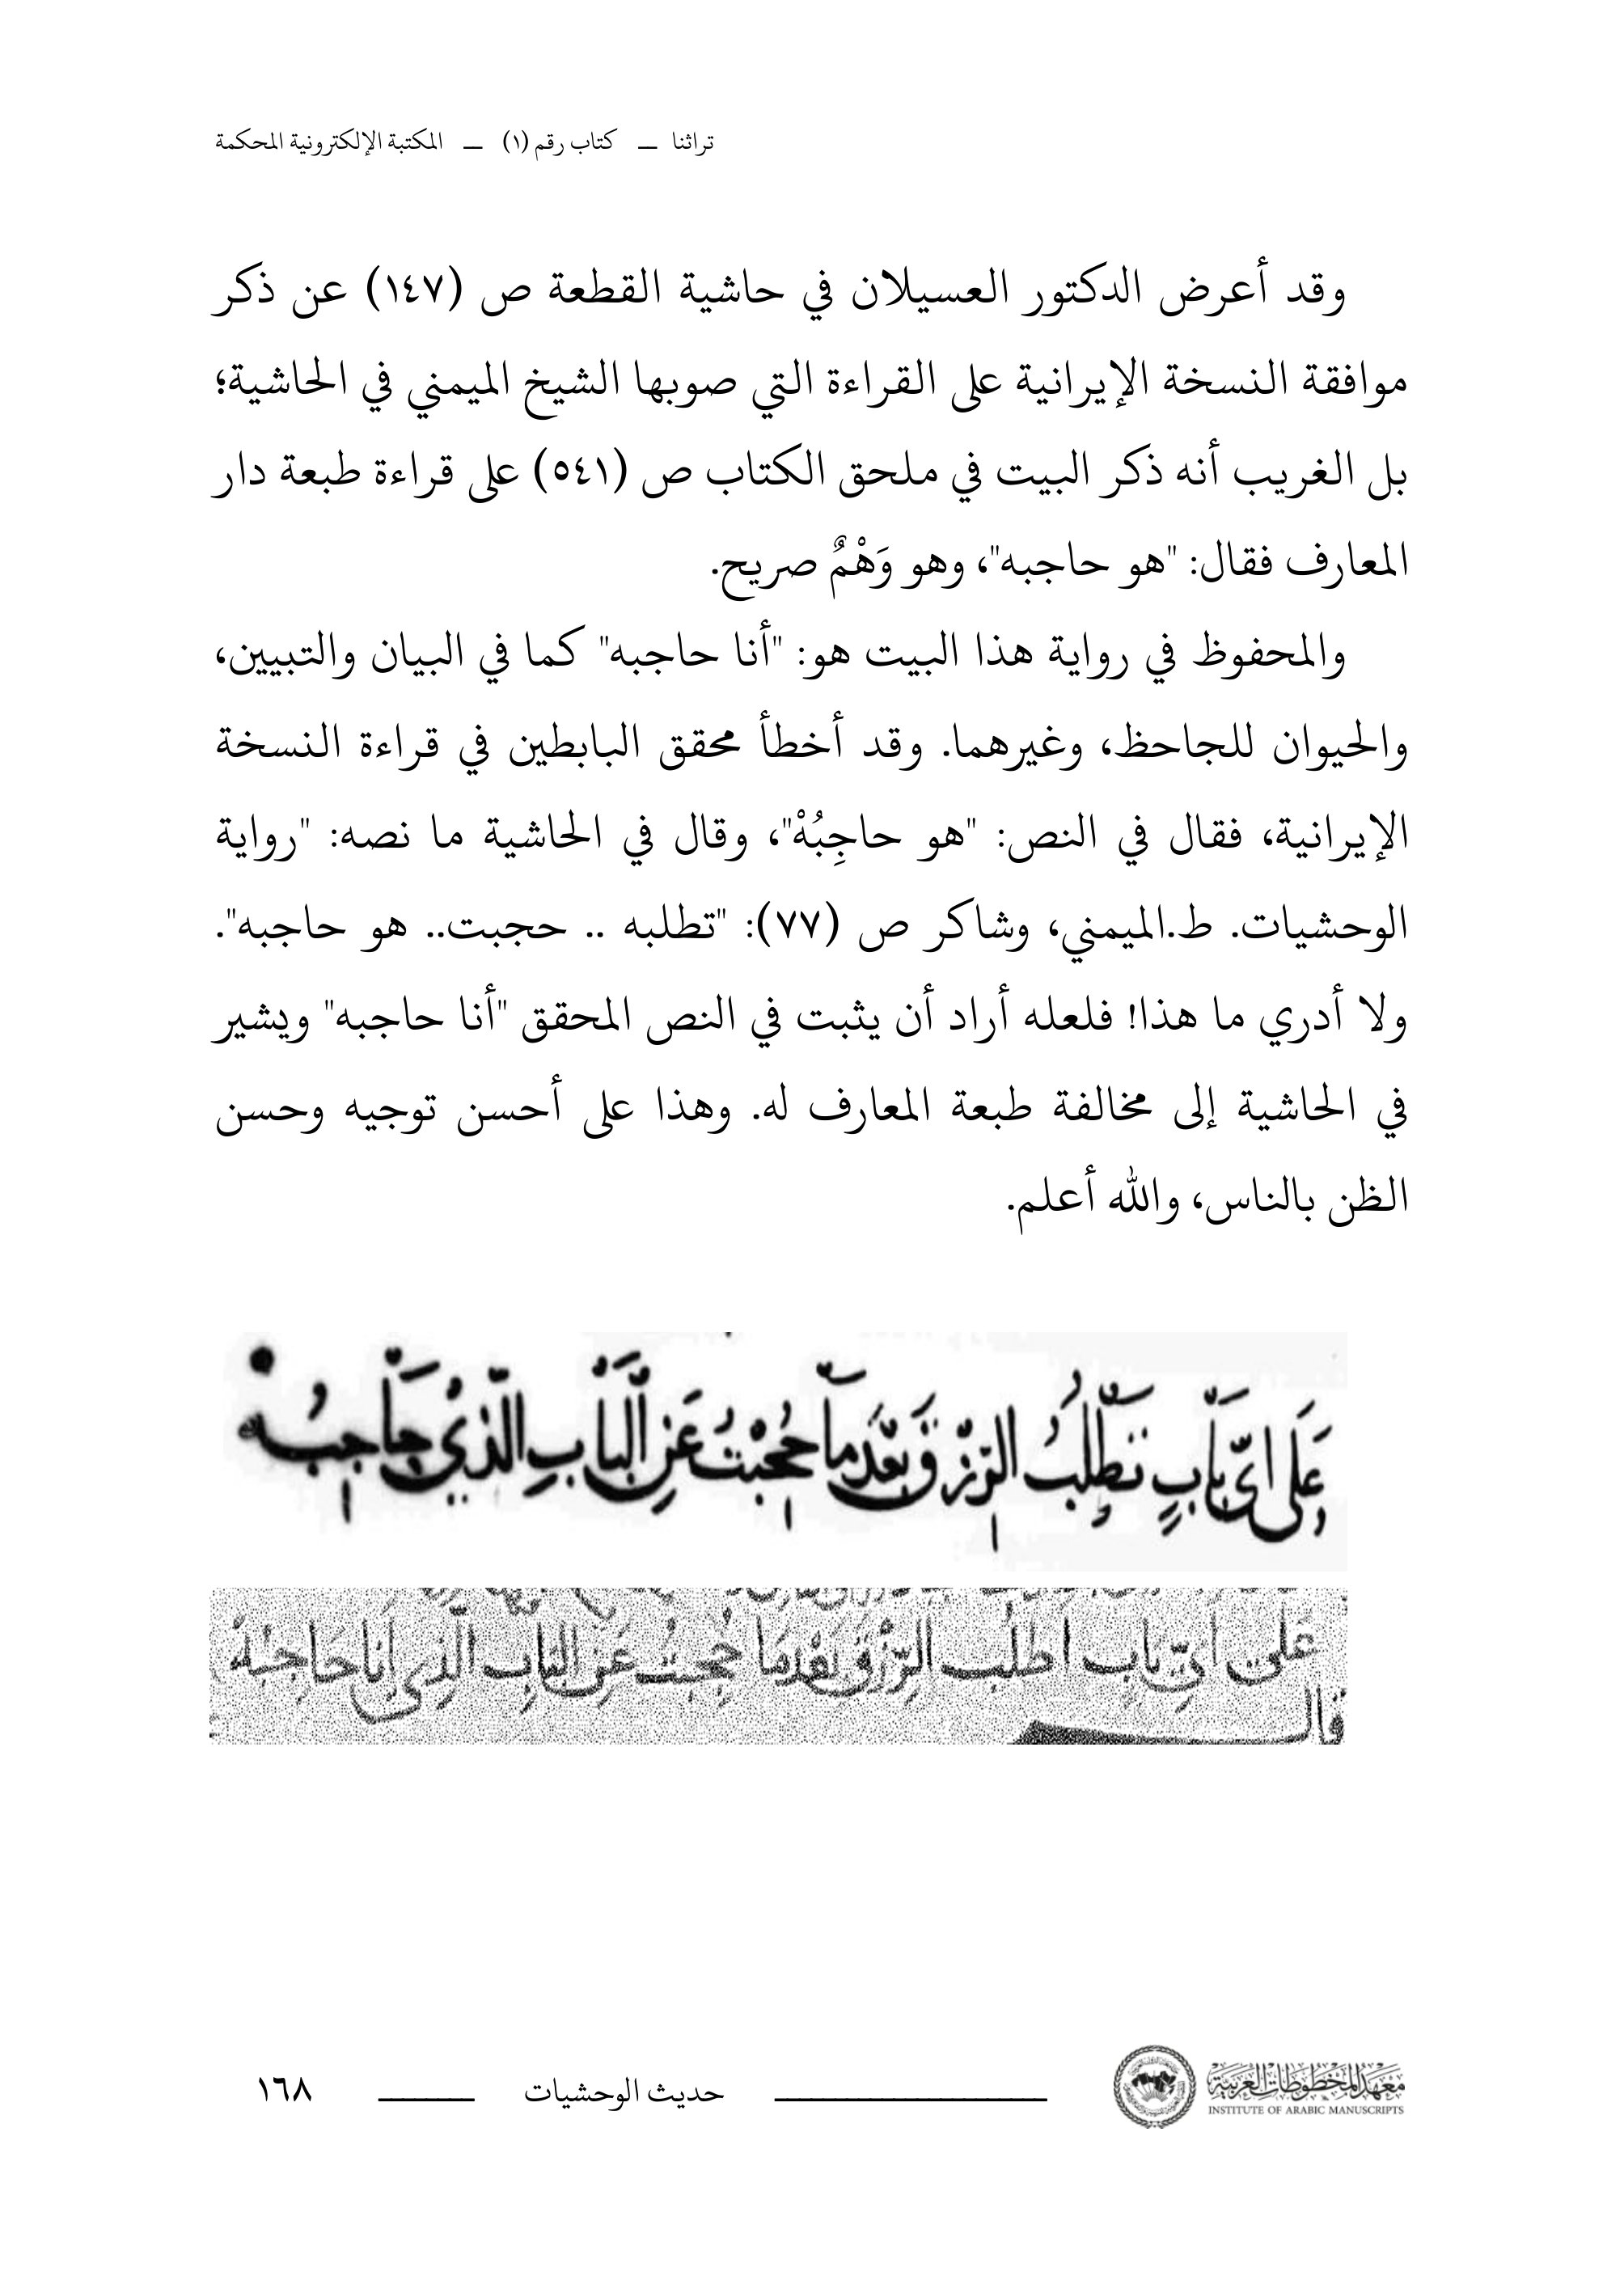 تراثنا ــ كتاب رقم (١) ــ المكتبة الإلكترونية المحكمة
وقد أعرض الدكتور العسيلان في حاشية القطعة ص (١٤٧) عن ذكر
موافقة النسخة الإيرانية على القراءة التي صوبها الشيخ الميمني في الحاشية؛
بل الغريب أنه ذكر البيت في ملحق الكتاب ص (٥٤١) على قراءة طبعة دار
المعارف فقال: "هو حاجبه"، وهو وَهْمٌ صريح.
والمحفوظ في رواية هذا البيت هو: "أنا حاجبه" كما في البيان والتبيين،
والحيوان للجاحظ، وغيرهما. وقد أخطأ محقق البابطين في قراءة النسخة
الإيرانية، فقال في النص: "هو حاجِبُهْ"، وقال في الحاشية ما نصه: "رواية
الوحشيات. ط.الميمني، وشاكر ص (٧٧): "تطلبه .. حجبت.. هو حاجبه".
ولا أدري ما هذا! فلعله أراد أن يثبت في النص المحقق "أنا حاجبه" ويشير
في الحاشية إلى مخالفة طبعة المعارف له. وهذا على أحسن توجيه وحسن
الظن بالناس، والله أعلم.
عَلى اىِّ بابٍ تطلبُ الرّزْقَ بَعْدَ ما حُجِبْتُ عَنِ البَابِ الّذِيْ حَاجِبُه
عَلىَ أيِّ بَابٍ اطلُب الرِّزْقَ بَعْدَمَا حُجِبْتُ عَنِ البَابِ الَّذِي أنَا حَاجِبُهُ
قال
معهد المخطوطات العربية
INSTITUTE OF ARABIC MANUSCRIPTS
حديث الوحشيات
١٦٨